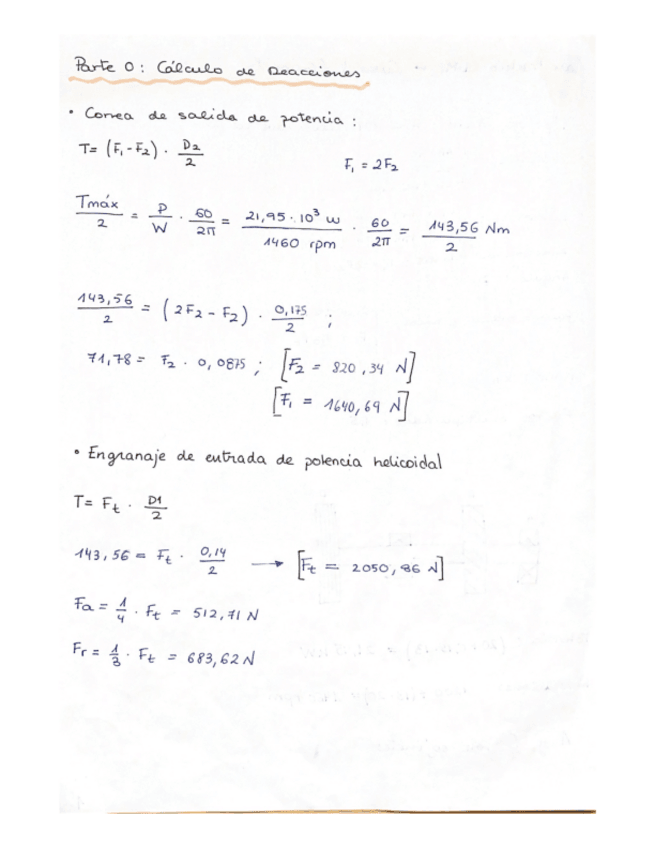 Parte 0: Cálculo de Reacciones
• Correa de salida de potencia:
T= (F₁-F₂) · D₂/2    F₁ = 2F₂
Tmáx/2 = P/W · 60/2π = 21,95·10³ W/1460 rpm · 60/2π = 143,56/2 Nm
143,56/2 = (2F₂ - F₂) · 0,175/2 ;
71,78 = F₂ · 0,0875 ; [F₂ = 820,34 N]
[F₁ = 1640,69 N]
• Engranaje de entrada de potencia helicoidal
T= Ft · D1/2
143,56 = Ft · 0,14/2 → [Ft = 2050,86 N]
Fa = 1/4 · Ft = 512,71 N
Fr = 1/3 · Ft = 683,62 N